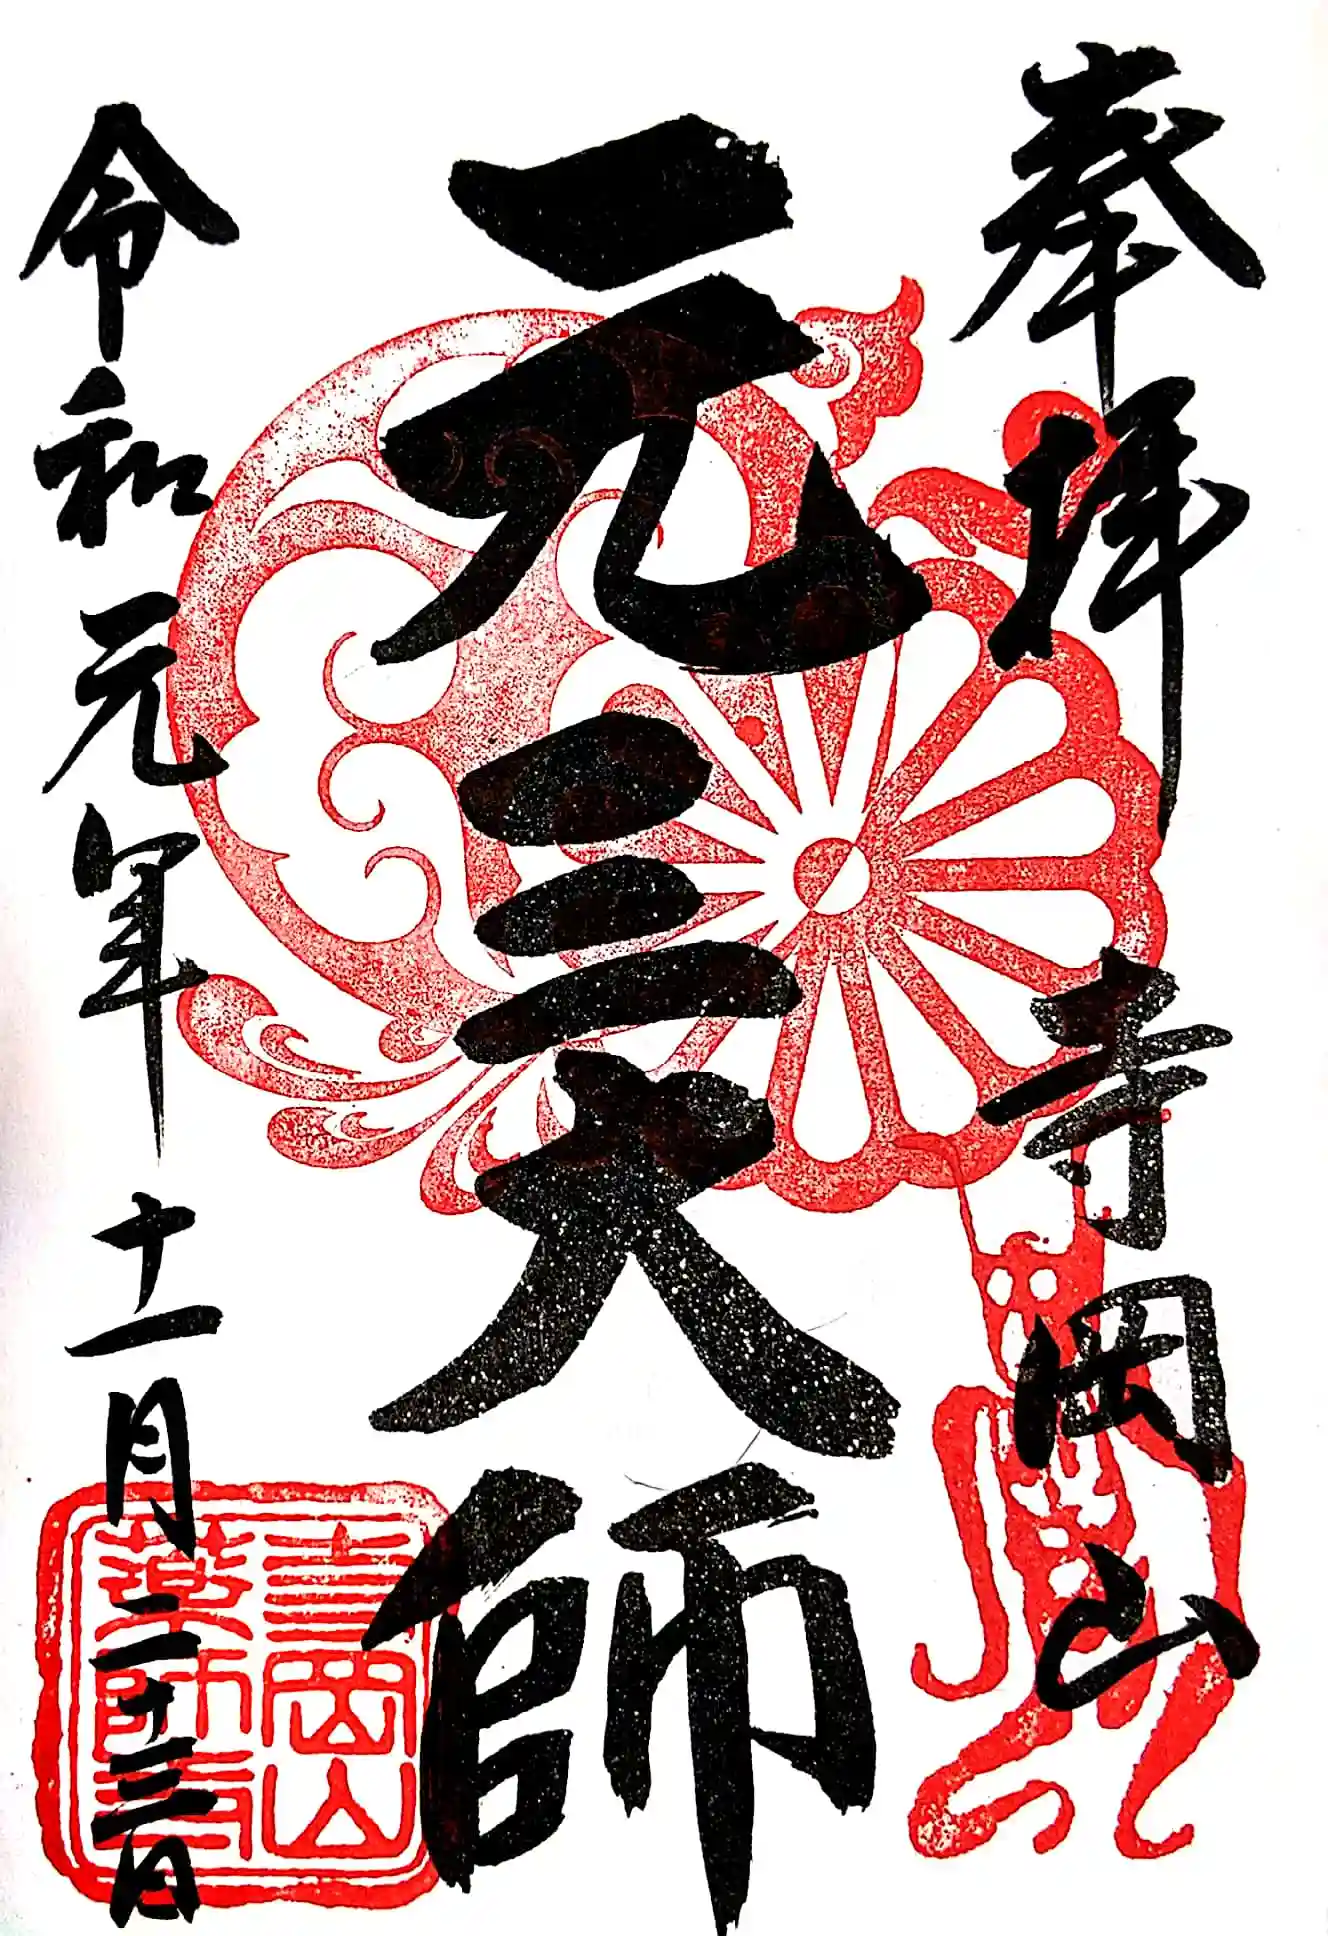 奉拝
寺岡山
元三大師
令和元年十一月二十三日
寺岡山
薬師寺